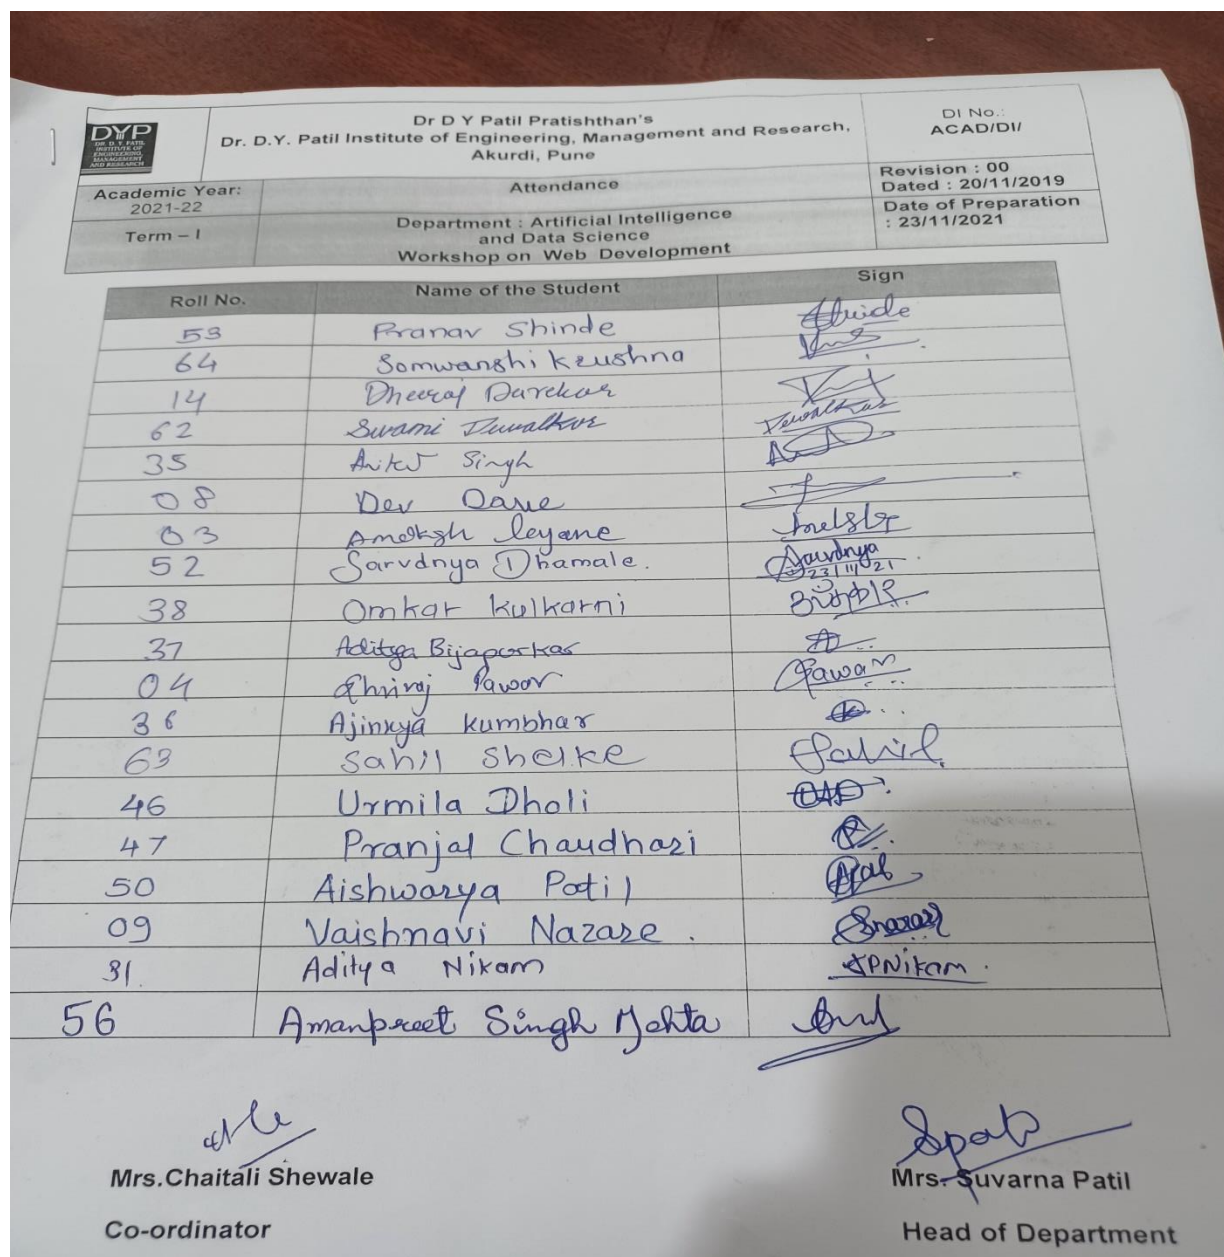 DYP
DR. D. Y. PATIL
INSTITUTE OF
ENGINEERING,
MANAGEMENT
AND RESEARCH
Dr D Y Patil Pratishthan's
Dr. D.Y. Patil Institute of Engineering, Management and Research,
Akurdi, Pune
DI No.:
ACAD/DI/
Academic Year:
2021-22
Attendance
Revision : 00
Dated : 20/11/2019
Term – I
Department : Artificial Intelligence
and Data Science
Workshop on Web Development
Date of Preparation
: 23/11/2021
Roll No. Name of the Student Sign
53 Pranav Shinde
64 Somwanshi Krushna
14 Dheeraj Darekar
62 Swami
35 Aniket Singh
08 Dev
03
52 Sarvdnya Dhamale. Sarvdnya
23/11/21
38 Omkar Kulkarni
37 Aditya Bijapurkar
04 Pawar Pawar
36 Ajinkya Kumbhar
63 Sahil Shelke Sahil
46 Urmila Dholi
47 Pranjal Chaudhari
50 Aishwarya Patil
09 Vaishnavi Nazare.
31. Aditya Nikam APNikam.
56 Amanpreet Singh Mehta
Mrs.Chaitali Shewale
Co-ordinator
Mrs. Suvarna Patil
Head of Department